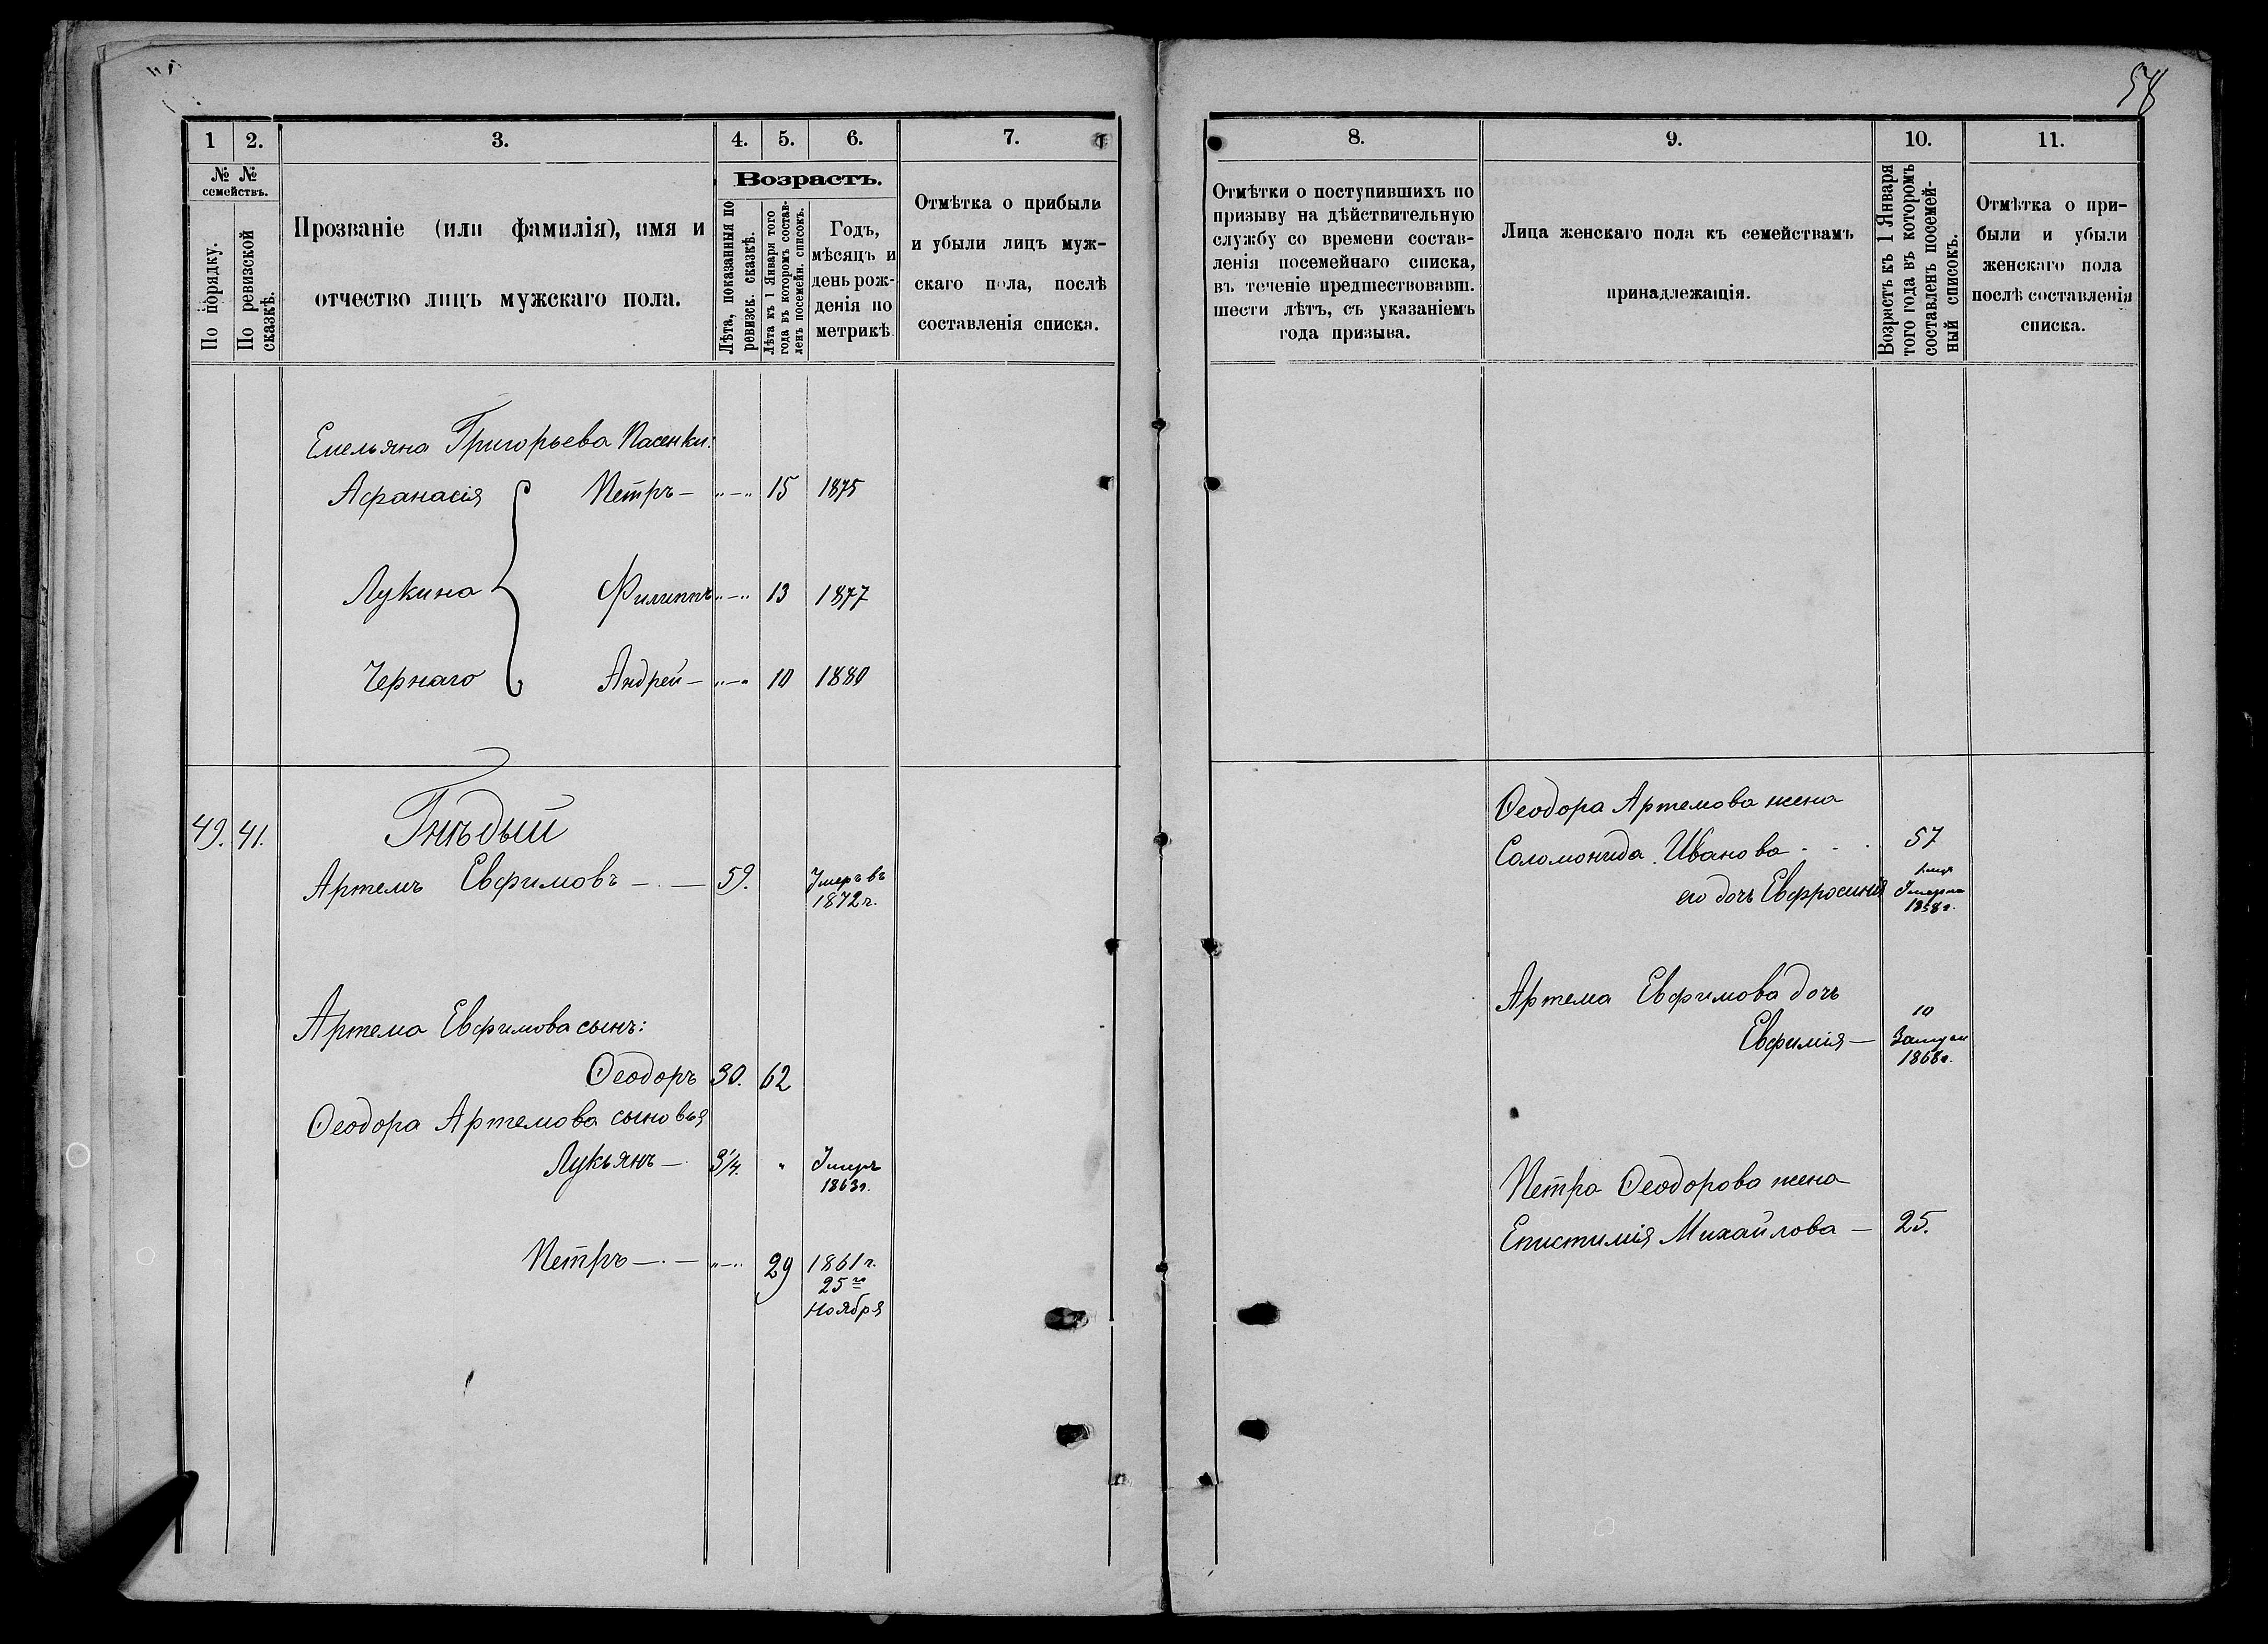 58
1
2.
3.
4.
5.
6.
7.
№ №
семействъ.
По порядку.
По ревизской
сказкѣ.
Прозваніе (или фамилія), имя и
отчество лицъ мужскаго пола.
Возрастъ.
Лѣта, показанныя по
ревизск. сказкѣ.
Лѣта къ 1 Января того
года въ которомъ состав-
ленъ посемейн. списокъ.
Годъ,
мѣсяцъ и
день рож-
денія по
метрикѣ.
Отмѣтка о прибыли
и убыли лицъ муж-
скаго пола, послѣ
составленія списка.
Емельяна Григорьева
Афанасія Петръ — "—" 15 1875
Лукина Филиппъ "—" 13 1877
Чернаго Андрей — "—" 10 1880
49. 41. Гнѣдый
Артемъ Евфимовъ — . — 59. Умеръ въ
1872 г.
Артема Евфимова сынъ:
Ѳеодоръ 30. 62
Ѳеодора Артемова сыновья
Лукьянъ — 3/4. " Умеръ
1863 г.
Петръ — . — "—" 29 1861 г.
25го
Ноября
8.
9.
10.
11.
Отмѣтки о поступившихъ по
призыву на дѣйствительную
службу со времени состав-
ленія посемейнаго списка,
въ теченіе предшествовавш.
шести лѣтъ, съ указаніемъ
года призыва.
Лица женскаго пола къ семействамъ
принадлежащія.
Возрастъ къ 1 Января
того года въ которомъ
составленъ посемей-
ный списокъ.
Отмѣтка о при-
были и убыли
женскаго пола
послѣ составленія
списка.
Ѳеодора Артемова жена
Соломонида Иванова . . . 57
его дочь Евфросинія Умерла
1858 г.
Артема Евфимова дочь
10
Евфимія — Замужъ
1868 г.
Петра Ѳеодорова жена
Епистимія Михайлова — 25.